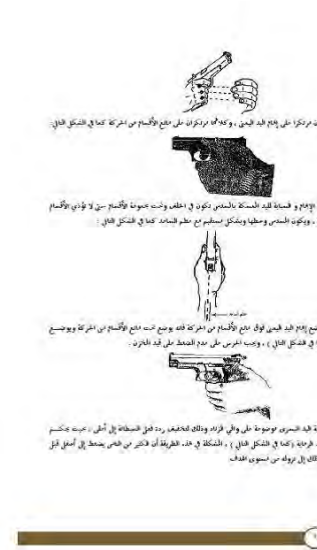 مرتكزا على إبهام اليد اليمنى ، وكلاهما مرتكزان على مانع الأقسام من الحركة كما في الشكل التالي:
الإبهام و السبابة لليد الممسكة بالمسدس تكون في الخلف وتحت مجموعة الأقسام حتى لا تؤذي الأقسام
، ويكون المسدس وخطها وبشكل مستقيم مع عظم الساعد كما في الشكل التالي :
إبهام اليد اليمنى فوق مانع الأقسام من الحركة فانه يوضع تحت مانع الأقسام من الحركة ويوضع
في الشكل التالي ) ، ويجب الحرص على عدم الضغط على قيد المخزن .
اليد اليسرى موضوعة على واقي الزناد وذلك لتخفيف ردة فعل السبطانة إلى أعلى ، بحيث
الرماية (كما في الشكل التالي ) ، المشكلة في هذه الطريقة أن الكثير من الناس يضغط إلى أسفل قبل
إلى نزوله عن مستوى الهدف